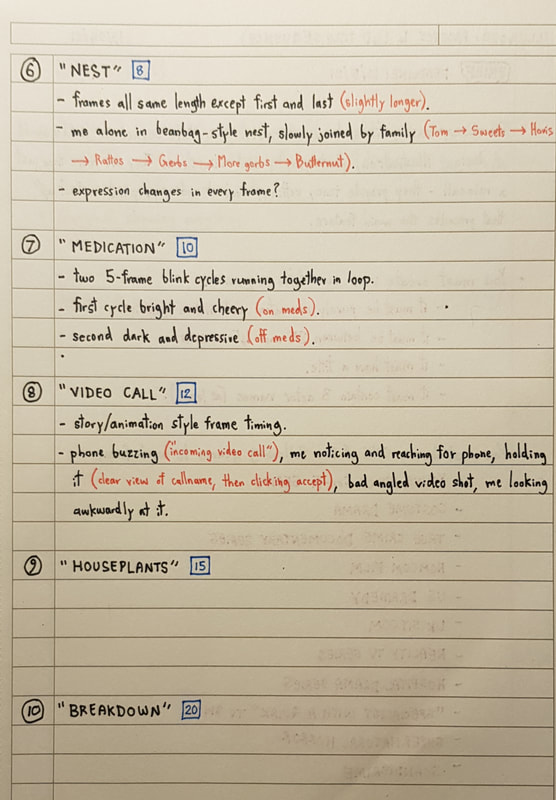 6 "NEST" 8
- frames all same length except first and last (slightly longer).
- me alone in beanbag-style nest, slowly joined by family (Tom → Sweets → Hovis
→ Rattos → Gerbs → More gorbs → Butternut).
- expression changes in every frame?
7 "MEDICATION" 10
- two 5-frame blink cycles running together in loop.
- first cycle bright and cheery (on meds).
- second dark and depressive (off meds).
8 "VIDEO CALL" 12
- story/animation style frame timing.
- phone buzzing ("incoming video call"), me noticing and reaching for phone, holding
it (clear view of callname, then clicking accept), bad angled video shot, me looking
awkwardly at it.
9 "HOUSEPLANTS" 15
10 "BREAKDOWN" 20